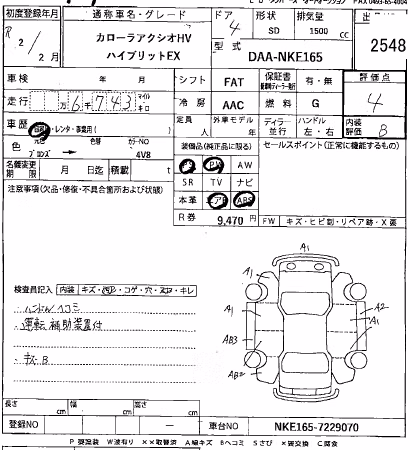 初度登録年月 通称車名・グレード ドア 形状 排気量
R 2 / 2月 カローラアクシオHV 4 SD 1500 cc
ハイブリットEX 型式 DAA-NKE165 2548
車検 年 月 シフト FAT 保証書 有・無 評価点
走行 6千743 マイル キロ 冷房 AAC 燃料 G 4
車歴 自家・レンタ・事業用( ) 定員 人 外車モデル ディーラー 並行 ハンドル 左・右 内装評価 B
元色 色替 カラーNO 装備品(純正品に限る) セールスポイント(正常に機能するもの)
色 ブロンズ 4V8 PS PW AW
名義変更期限 月 日迄 積載量 t SR TV ナビ
注意事項(欠品・修復・不具合箇所および状態) 本革 エアB ABS
R券 9,470 円 FW キズ・ヒビ割・リペア跡・X要
A1
A1
A1 A2
AB3 A1
AB2
検査員記入 内装 キズ・汚レ・コゲ・穴・スレ・キレ
ハンドルヘコミ
運転補助装置付
キズ B
長さ cm 幅 cm 高さ cm
登録NO 車台NO NKE165-7229070
P 要塗装 W波有り ××取替済 A線キズ Bヘコミ Sさび ×要交換 C腐食